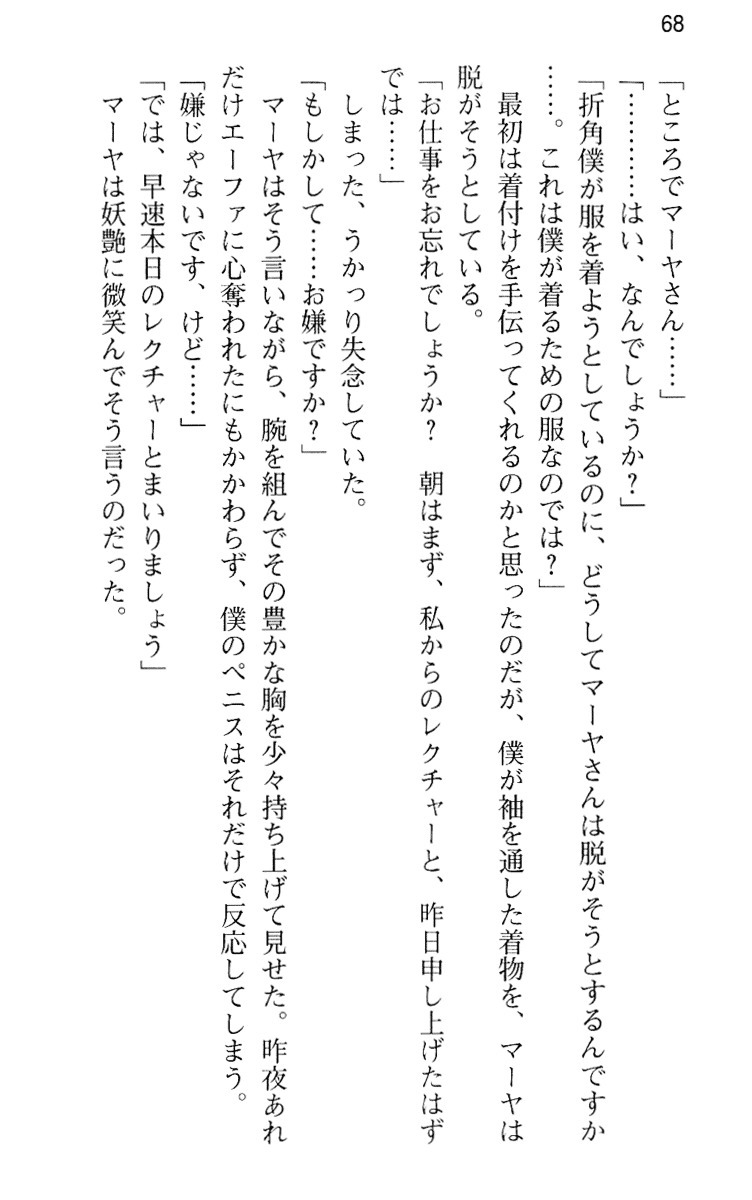 68
「ところでマーヤさん……」
「…………はい、なんでしょうか？」
「折角僕が服を着ようとしているのに、どうしてマーヤさんは脱がそうとするんですか
……。これは僕が着るための服なのでは？」
最初は着付けを手伝ってくれるのかと思ったのだが、僕が袖を通した着物を、マーヤは
脱がそうとしている。
「お仕事をお忘れでしょうか？　朝はまず、私からのレクチャーと、昨日申し上げたはず
では……」
しまった、うかっり失念していた。
「もしかして……お嫌ですか？」
マーヤはそう言いながら、腕を組んでその豊かな胸を少々持ち上げて見せた。昨夜あれ
だけエーファに心奪われたにもかかわらず、僕のペニスはそれだけで反応してしまう。
「嫌じゃないです、けど……」
「では、早速本日のレクチャーとまいりましょう」
マーヤは妖艶に微笑んでそう言うのだった。